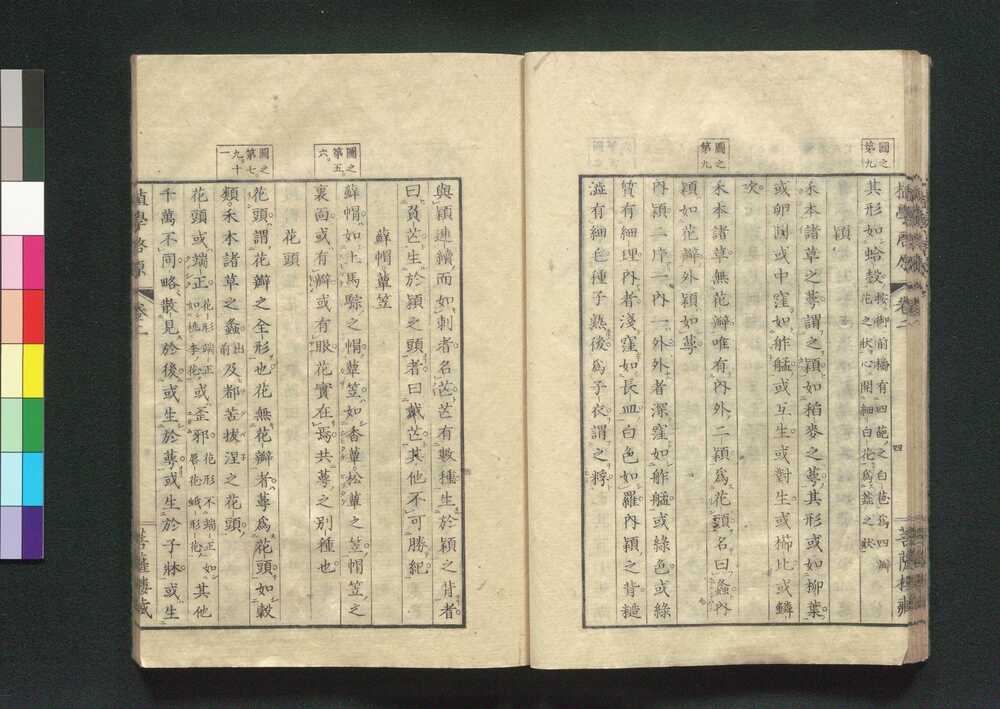 圖之
第九
其形如蛤殼
按御前橘有四葩之白苞爲四瓣
花之狀心開細白花爲蕊之狀
穎
禾本諸草之萼謂之穎如稻麥之萼其形或如柳葉
或卵圓或中窪如舴艋或互生或對生或櫛比或鱗
次
圖之
第九
禾本諸草無花瓣唯有內外二穎爲花頭名曰蠡內
穎如花瓣外穎如萼
內穎二序一內一外外者深窪如舴艋或綠色或綠
質有細理內者淺窪如長皿白色如羅內穎之背縫
澁有細色種子熟後爲子衣謂之稃
植學啓原
卷二
四
菩薩樓藏
與穎連續而如刺者名芒芒有數種生於穎之背者
曰負芒生於穎之頭者曰戴芒其他不可勝紀
蘚帽蕈笠
圖之
第五
六
蘚帽如上馬騣之帽蕈笠如香蕈松蕈之笠帽笠之
裏面或有瓣或有眼花實在焉共萼之別種也
花頭
圖之
第七
九十
一
花頭謂花瓣之全形也花無花瓣者萼爲花頭如穀
類禾本諸草之蠡出前及都苦拔涅之花頭
花頭或端正
花形端正
如桃李花
或歪邪
花形不端正如
罌花蛾形花
其他
千萬不同略散見於後或生於萼或生於子牀或生
植學啓原
卷二
菩薩樓藏